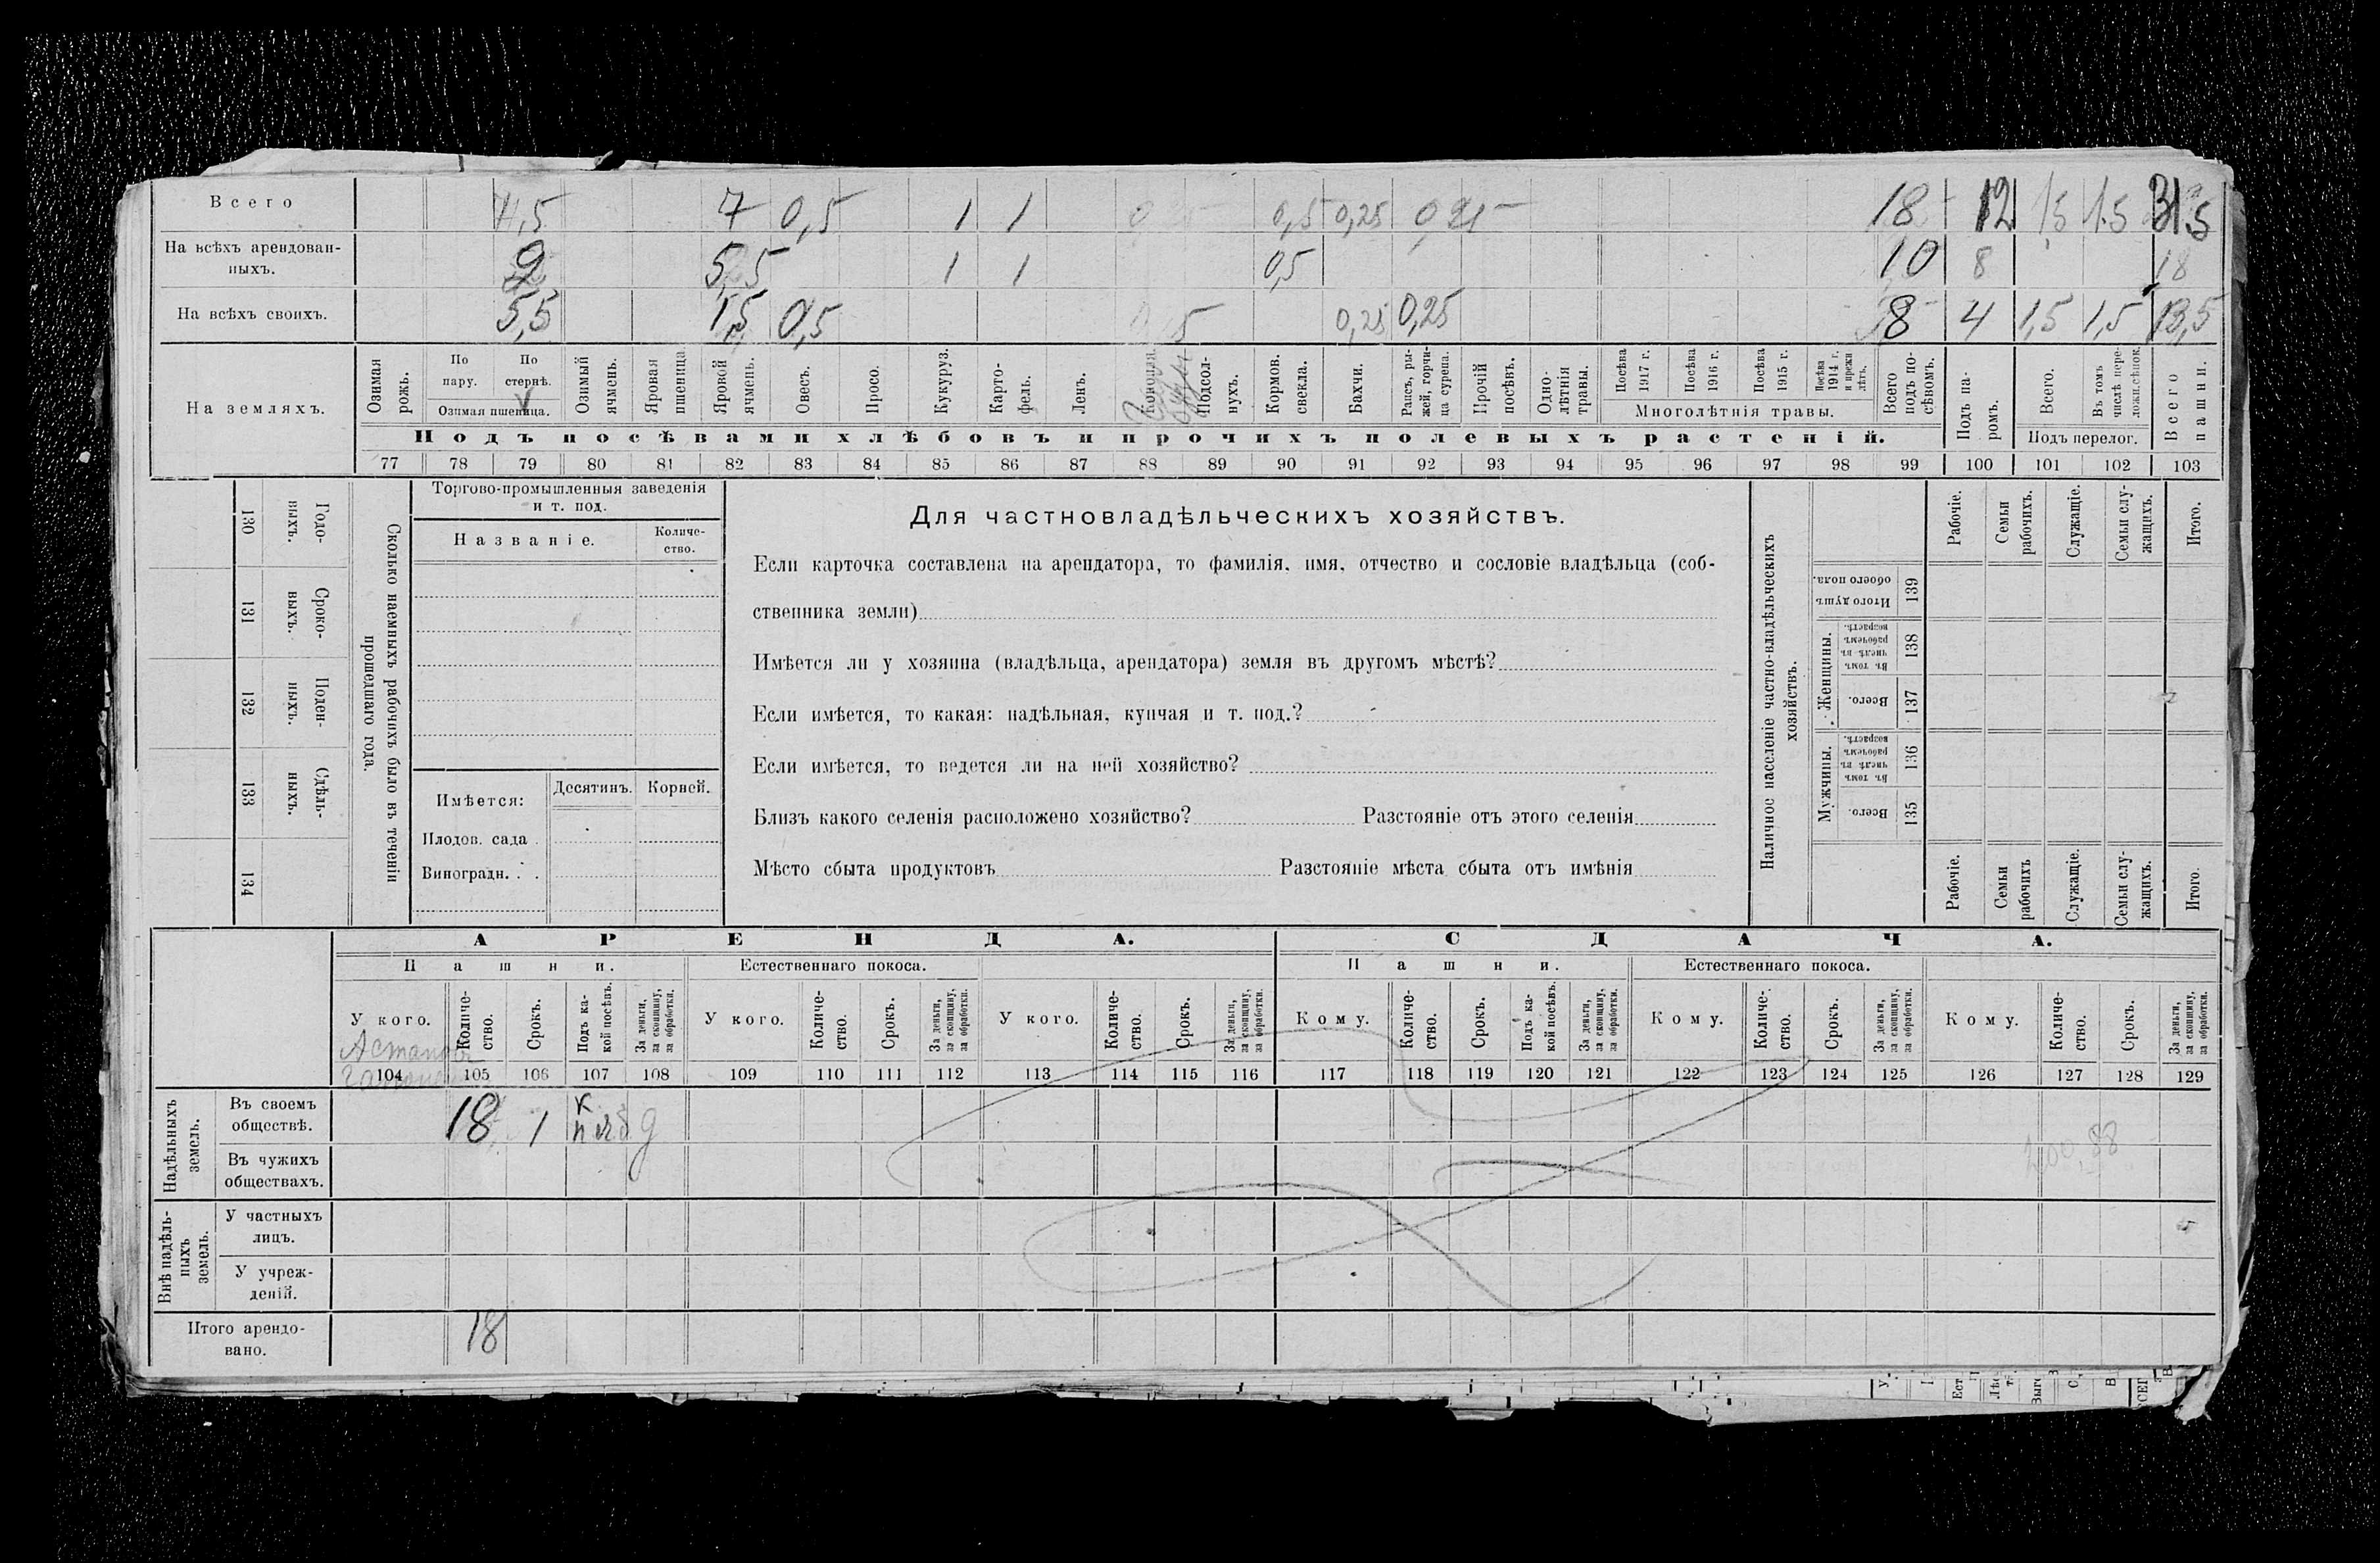 Всего 7,5 7 0,5 1 1 0,5 0,25 18 12 1,5 1.5 31,5
На всѣхъ арендован-
ныхъ. 2 5,5 1 1 0,5 10 8 18
На всѣхъ своихъ. 5,5 1,5 0,5 0,25 0,25 8 4 1,5 1,5 13,5
На земляхъ.
Озимая рожь.
По пару.
По стернѣ.
Озимая пшеница.
Озимый ячмень.
Яровая пшеница.
Яровой ячмень.
Овесъ.
Просо.
Кукуруз.
Карто-
фель.
Ленъ.
Конопля.
Подсол-
нухъ.
Кормов. свекла.
Бахчи.
Рапсъ, ры-
жей, горчи-
ца сурепа.
Прочій посѣвъ.
Одно-
лѣтнія травы.
Посѣва 1917 г.
Посѣва 1916 г.
Посѣва 1915 г.
Посѣва 1914 г. и прежн лѣтъ.
Многолѣтнія травы.
Всего подъ по-
сѣвомъ.
Подъ па-
ромъ.
Всего.
Въ томъ числѣ пере-
ложн.сѣнок.
Подъ перелог.
Всего пашни.
Подъ посѣвами хлѣбовъ и прочихъ полевыхъ растеній.
77 78 79 80 81 82 83 84 85 86 87 88 89 90 91 92 93 94 95 96 97 98 99 100 101 102 103
130 Годо-
выхъ.
131 Сроко-
выхъ.
132 Поден-
ныхъ.
133 Сдѣль-
ныхъ.
134
Сколько наемныхъ рабочихъ было въ теченіи
прошедшаго года.
Торгово-промышленныя заведенія
и т. под.
Названіе.
Количе-
ство.
Имѣется:
Десятинъ.
Корней.
Плодов. сада .
Виноградн. . .
Для частновладѣльческихъ хозяйствъ.
Если карточка составлена на арендатора, то фамилія, имя, отчество и сословіе владѣльца (соб-
ственника земли)
Имѣется ли у хозяина (владѣльца, арендатора) земля въ другомъ мѣстѣ?
Если имѣется, то какая: надѣльная, купчая и т. под.?
Если имѣется, то ведется ли на ней хозяйство?
Близъ какого селенія расположено хозяйство? Разстояніе отъ этого селенія
Мѣсто сбыта продуктовъ Разстояніе мѣста сбыта отъ имѣнія
Наличное населеніе частно-владѣльческихъ
хозяйствъ.
Рабочіе.
Семьи рабочихъ.
Служащіе.
Семьи слу-
жащихъ.
Итого.
Итого душъ обоего пола. 139
Женщины.
Въ томъ числѣ въ рабочемъ возрастѣ. 138
Всего. 137
Мужчины.
Въ томъ числѣ въ рабочемъ возрастѣ. 136
Всего. 135
Рабочіе.
Семьи рабочихъ
Служащіе.
Семьи слу-
жащихъ.
Итого.
АРЕНДА. СДАЧА.
Пашни. Естественнаго покоса. Пашни. Естественнаго покоса.
У кого.
Количе-
ство.
Срокъ.
Подъ ка-
кой посѣвъ.
За деньги, за скопщину, за обработки.
У кого.
Количе-
ство.
Срокъ.
За деньги, за скопщину, за обработки.
У кого.
Количе-
ство.
Срокъ.
За деньги, за скопщину, за обработки.
Кому.
Количе-
ство.
Срокъ.
Подъ ка-
кой посѣвъ.
За деньги, за скопщину, за обработки.
Кому.
Количе-
ство.
Срокъ.
За деньги, за скопщину, за обработки.
Кому.
Количе-
ство.
Срокъ.
За деньги, за скопщину, за обработки.
104 105 106 107 108 109 110 111 112 113 114 115 116 117 118 119 120 121 122 123 124 125 126 127 128 129
Надѣльныхъ земель.
Въ своемъ
обществѣ. 18 1
Въ чужихъ
обществахъ.
Внѣ надѣль-
ныхъ земель.
У частныхъ
лицъ.
У учреж-
деній.
Итого арендо-
вано. 18